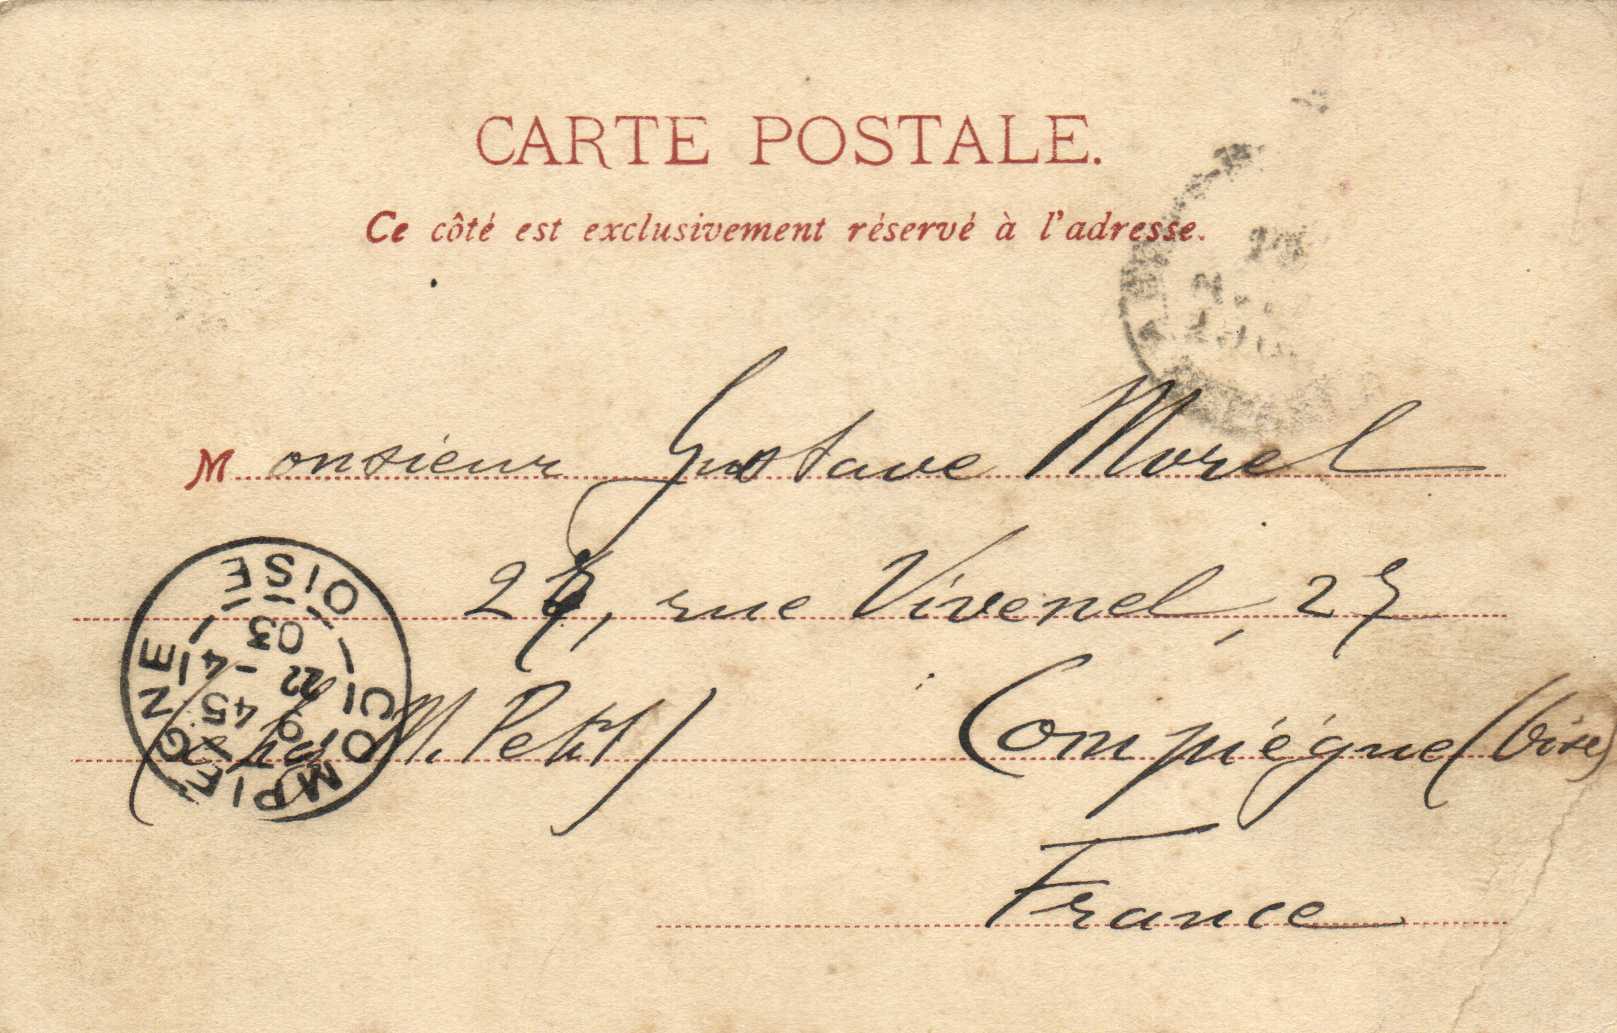 CARTE POSTALE.
Ce côté est exclusivement réservé à l'adresse.
Monsieur Gustave Morel
27, rue Vivenel, 27
M. Petit)
Compiégne (Oise)
France
COMPIEGNE
OISE
9 45
22 - 4
03